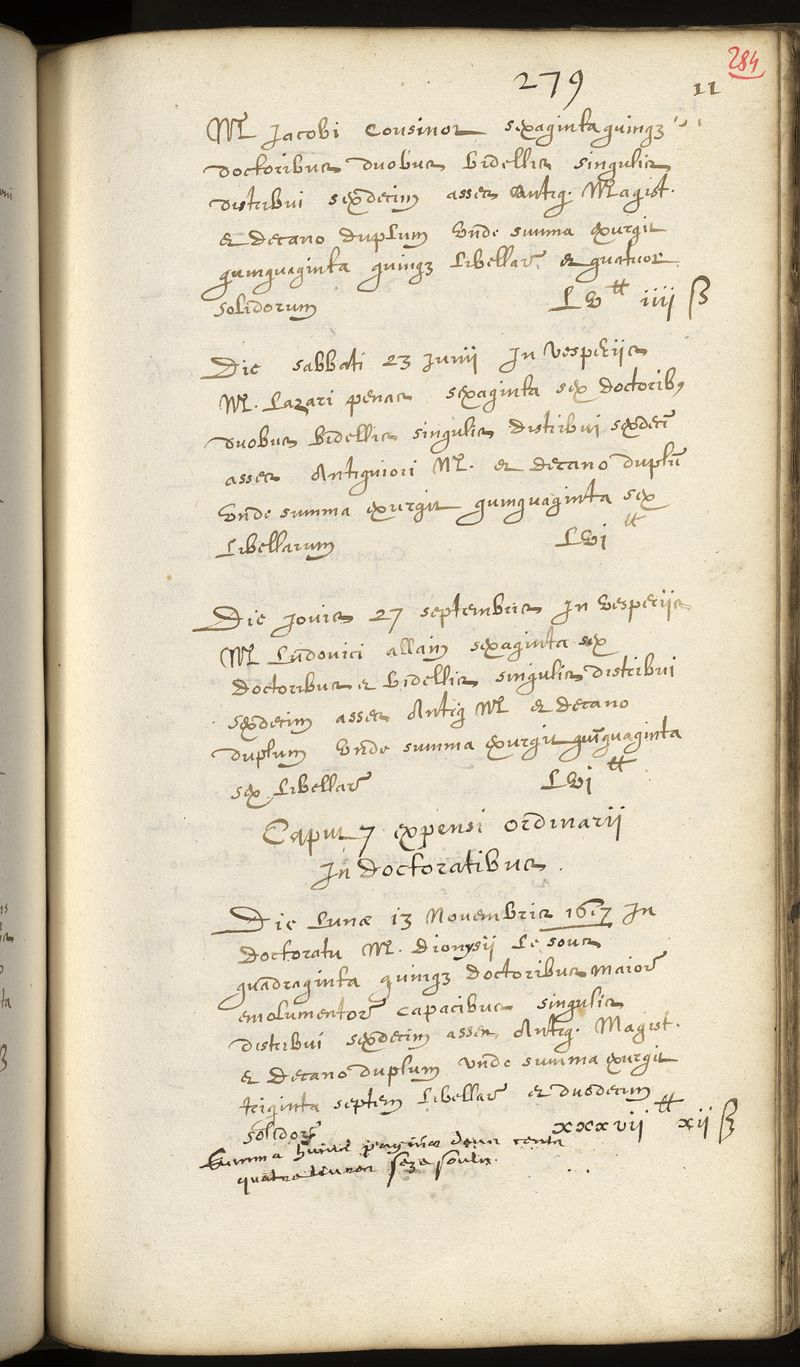 284
279
11
M. Jacobi Cousinot sexaginta quinq3
doctoribus duobus bidellis singulis
distribui sexdecim asses Antiq. Magist.
et decano duplum unde summa exurgit
quinquaginta quinq3 libellar. et quatuor
solidorum LV ₶ iiij ß
Die sabbati 23 Junii In vesperiis
M. Lazari penas sexaginta sex doctorib9
duobus bidellis singulis distribui sexdeci
asses Antiquiori M. et decano duplu
unde summa exurgit quinquaginta sex
libellarum LVi ₶
Die Jovis 27 septembris In vesperiis
M Ludovici allain sexaginta sex
doctoribus et bidellis singulis distribui
sexdecim asses Antiq M et decano
duplum unde summa exurgit quiquaginta
sex libellar LVi ₶
Caput 7 expensi ordinarii
In doctoratibus.
Die Lunæ 13 Novembris 1617 In
doctoratu M. Dionysii Le soubs
quadraginta quinq3 doctoribus maior
emolumentor capacibus singulis
distribui sexdecim asses Antiq. Magist.
et decano duplum unde summa exurgit
triginta septem libellar et duodecim
solidor xxxvii ₶ xii ß
Summa huius paginæ deux cents
quatre livres seze soulx.